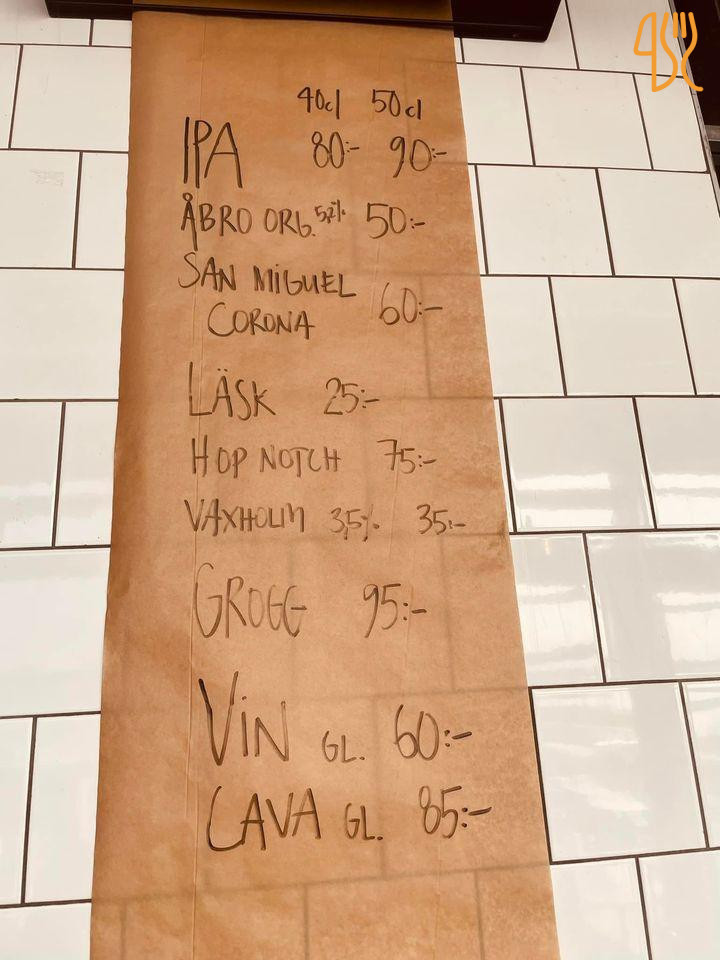 40cl 50cl
IPA 80:- 90:-
ÅBRO ORG. 5,2% 50:-
SAN MIGUEL
CORONA 60:-
LÄSK 25:-
HOP NOTCH 75:-
VAXHOLM 3,5% 35:-
GROGG 95:-
VIN GL. 60:-
CAVA GL. 85:-